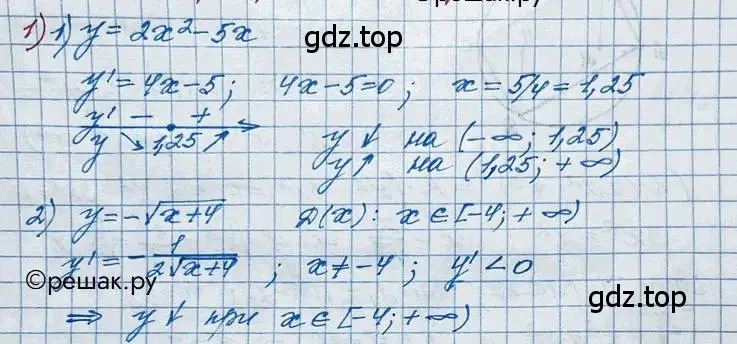 ©решак.ру
1) 1) y = 2x² - 5x
gdz.top
y' = 4x - 5 ; 4x - 5 = 0 ; x = 5/4 = 1,25
y' - +
y ↘ 1,25 ↗ y ↓ на (-∞; 1,25)
y ↑ на (1,25; +∞)
2) y = -√(x+4) D(x): x ∈ [-4; +∞)
y' = - 1/(2√(x+4)) ; x ≠ -4 ; y' < 0
©решак.ру
gdz.top
⇒ y ↓ при x ∈ [-4; +∞)